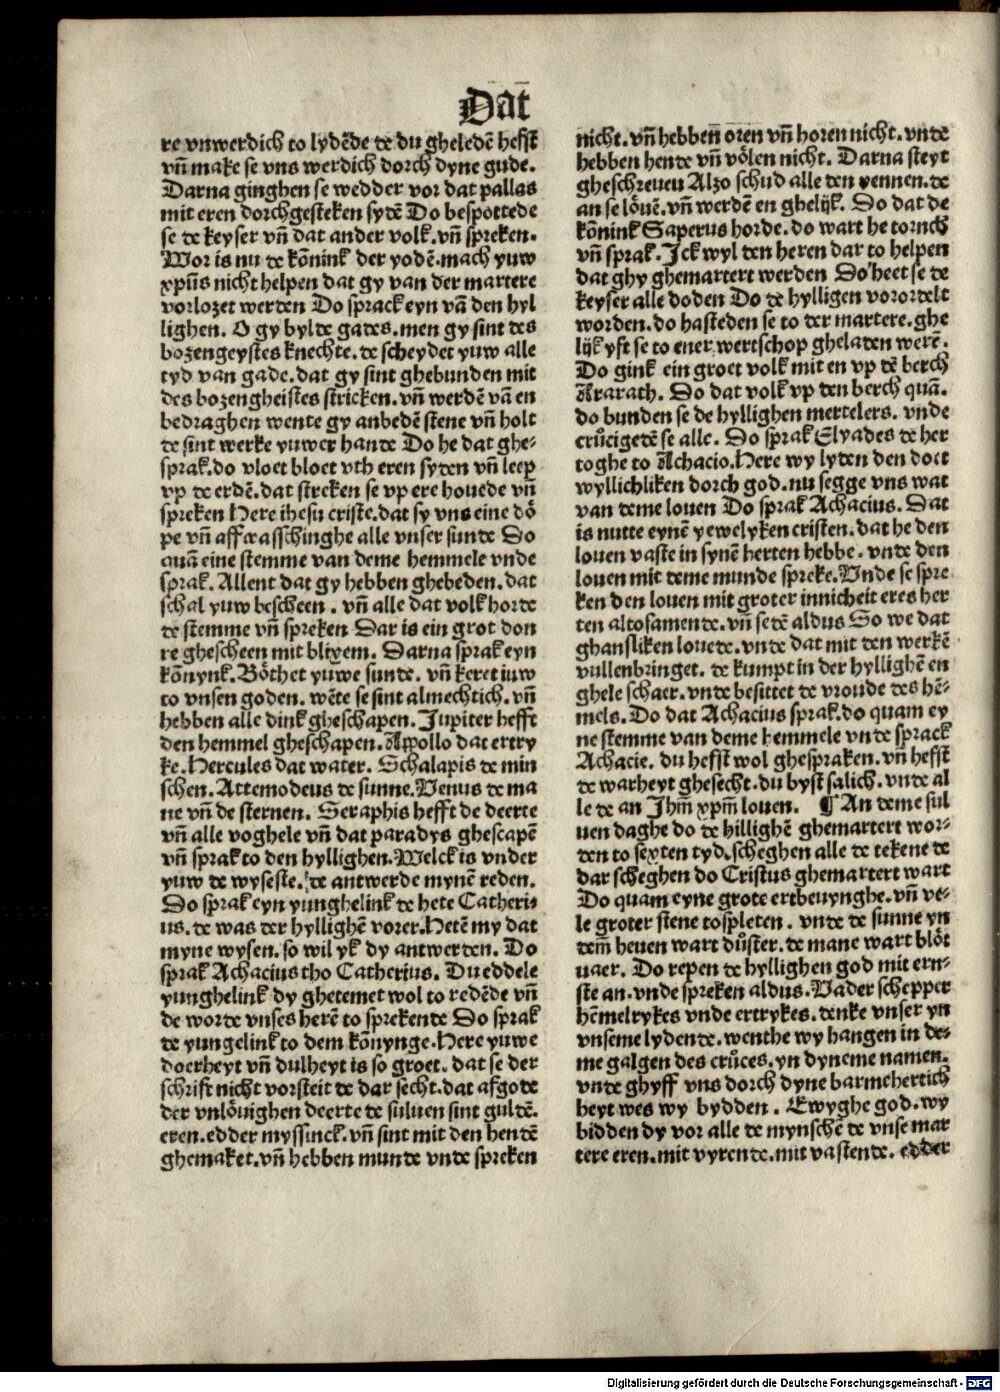 Dat̄
re vnwerdich to lydēde de du gheledē hefst
vn̄ make se vns werdich dorch dyne gude.
Darna ginghen se wedder vor dat pallas
mit eren dorchgesteken sydē Do bespottede
se de keyser vn̄ dat ander volk. vn̄ spreken.
Wor is nu de kōnink der yodē. mach yuw
xpūs nicht helpen dat gy van der martere
vorlozet werden Do sprack eyn vā den hyl
lighen. O gy bylde gades. men gy sint des
bozengeystes knechte. de scheydet yuw alle
tyd van gade. dat gy sint ghebunden mit
des bozengheistes stricken. vn̄ werdē vā en
bedraghen wente gy anbedē stene vn̄ holt
de sint werke yuwer hande Do he dat ghe⸗
sprak. do vloet bloet vth eren syden vn̄ leep
vp de erdē. dat streken se vp ere houede vn̄
spreken Here ihesu criste. dat sy vns eine dȫ
pe vn̄ aff asschinghe alle vnser sunde Do
quā eine stemme van deme hemmele vnde
sprak. Allent dat gy hebben ghebeden. dat
schal yuw bescheen. vn̄ alle dat volk horde
de stemme vn̄ spreken Dar is ein grot don
re ghescheen mit blixem. Darna sprak eyn
kōnynk. Bȫthet yuwe sunde. vn̄ keret iuw
to vnsen goden. wēte se sint almechtich. vn̄
hebben alle dink gheschapen. Jupiter hefft
den hemmel gheschapen. Appollo dat ertry
ke. Hercules dat water. Schalapis de min
schen. Attemodeus de sunne. Venus de ma
ne vn̄ de sternen. Seraphis hefft de deerte
vn̄ alle voghele vn̄ dat paradys ghescapē
vn̄ sprak to den hyllighen. Welck is vnder
yuw de wyseste. de antwerde mynē reden.
Do sprak eyn yunghelink de hete Catheri⸗
us. de was der hyllighē vorer. Hetē my dat
myne wysen. so wil yk dy antwerden. Do
sprak Achacius tho Catherius. Du eddele
yunghelink dy ghetemet wol to redēde vn̄
de worde vnses herē to sprekende Do sprak
de yungelink to dem kōnynge. Here yuwe
doerheyt vn̄ dulheyt is so groet. dat se der
schrift nicht vorsteit de dar secht. dat afgode
der vnlȫuighen deerte de suluen sint guldē.
eren. edder myssinck. vn̄ sint mit den hendē
ghemaket. vn̄ hebben munde vnde spreken
nicht. vn̄ hebbenn oren vn̄ horen nicht. vnde
hebben hende vn̄ vȫlen nicht. Darna steyt
gheschreueu Alzo schud alle den yennen. de
an se lȫuē. vn̄ werdē en ghelijk. Do dat de
kōnink Saperus horde. do wart he tornch
vn̄ sprak. Jck wyl den heren dar to helpen
dat ghy ghemartert werden Do heet se de
keyser alle doden Do de hylligen vorordelt
worden. do hasteden se to der martere. ghe
lijk yft se to ener wertschop gheladen werē.
Do gink ein groet volk mit en vp dē berch
Ararath. Do dat volk vp den berch quā.
do bunden se de hyllighen mertelers. vnde
crůcigedē se alle. Do sprak Elyades de her
toghe to Achacio. Here wy lyden den doet
wyllichliken dorch god. nu segge vns wat
van deme louen Do sprak Achacius. Dat
is nutte eynē yewelyken cristen. dat he den
louen vaste in synē herten hebbe. vnde den
louen mit deme munde spreke. Vnde se spre
ken den louen mit groter innicheit eres her
ten altosamende. vn̄ sedē aldus So we dat
ghansliken louede. vnde dat mit den werkē
vullenbringet. de kumpt in der hyllighē en
ghele schaer. vnde besittet de vroude des hē⸗
mels. Do dat Achacius sprak. do quam ey
ne stemme van deme hemmele vnde sprack
Achacie. du hefst wol ghespraken. vn̄ hefst
de warheyt ghesecht. du byst salich. vnde al
le de an Jhm̄ xpm̄ louen. ¶ An deme sul
uen daghe do de hillighē ghemartert wor⸗
den to sexten tyd. scheghen alle de tekene de
dar scheghen do Cristus ghemartert wart
Do quam eyne grote ertbeuynghe. vn̄ ve⸗
le groter stene tospleten. vnde de sunne yn
dem̄ heuen wart důster. de mane wart blȫt
uaer. Do repen de hyllighen god mit ern⸗
ste an. vnde spreken aldus. Vader schepper
hēmelrykes vnde ertrykes. denke vnser yn
vnseme lydende. wenthe wy hangen in de⸗
me galgen des crůces. yn dyneme namen.
vnde ghyff vns dorch dyne barmehertich
heyt wes wy bydden. Ewyghe god. wy
bidden dy vor alle de mynschē de vnse mar
tere eren. mit vyrende. mit vastende. edder
Digitalisierung gefördert durch die Deutsche Forschungsgemeinschaft - DFG